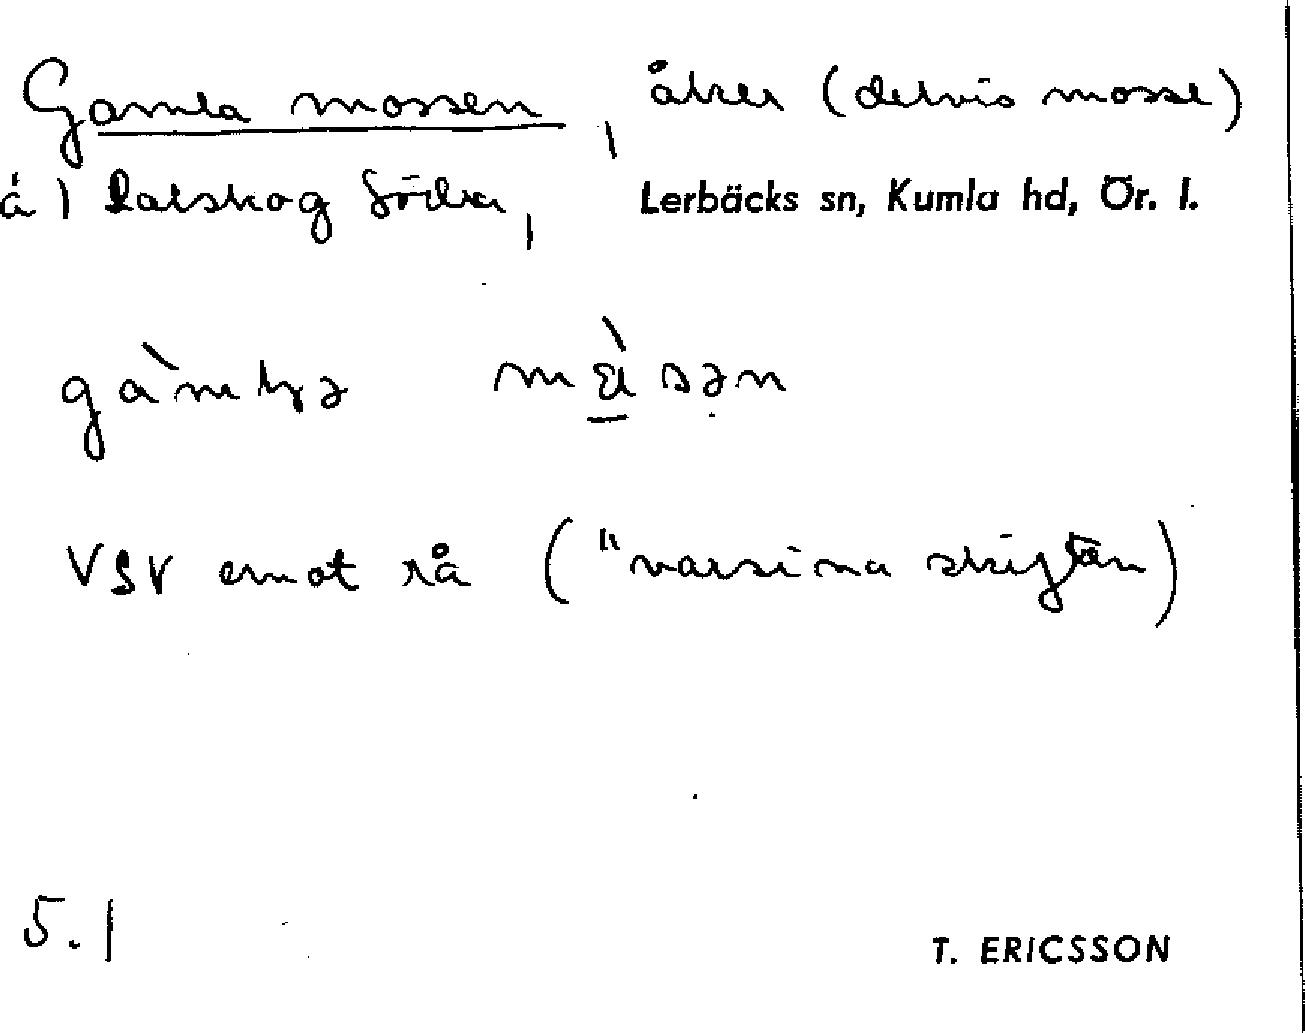 Gamla mossen, åker (delvis mosse)
å 1 Ralskog Södra, Lerbäcks sn, Kumla hd, Ör. l.
VSV emot rå ("varsina skiftän)
5.1
T. ERICSSON